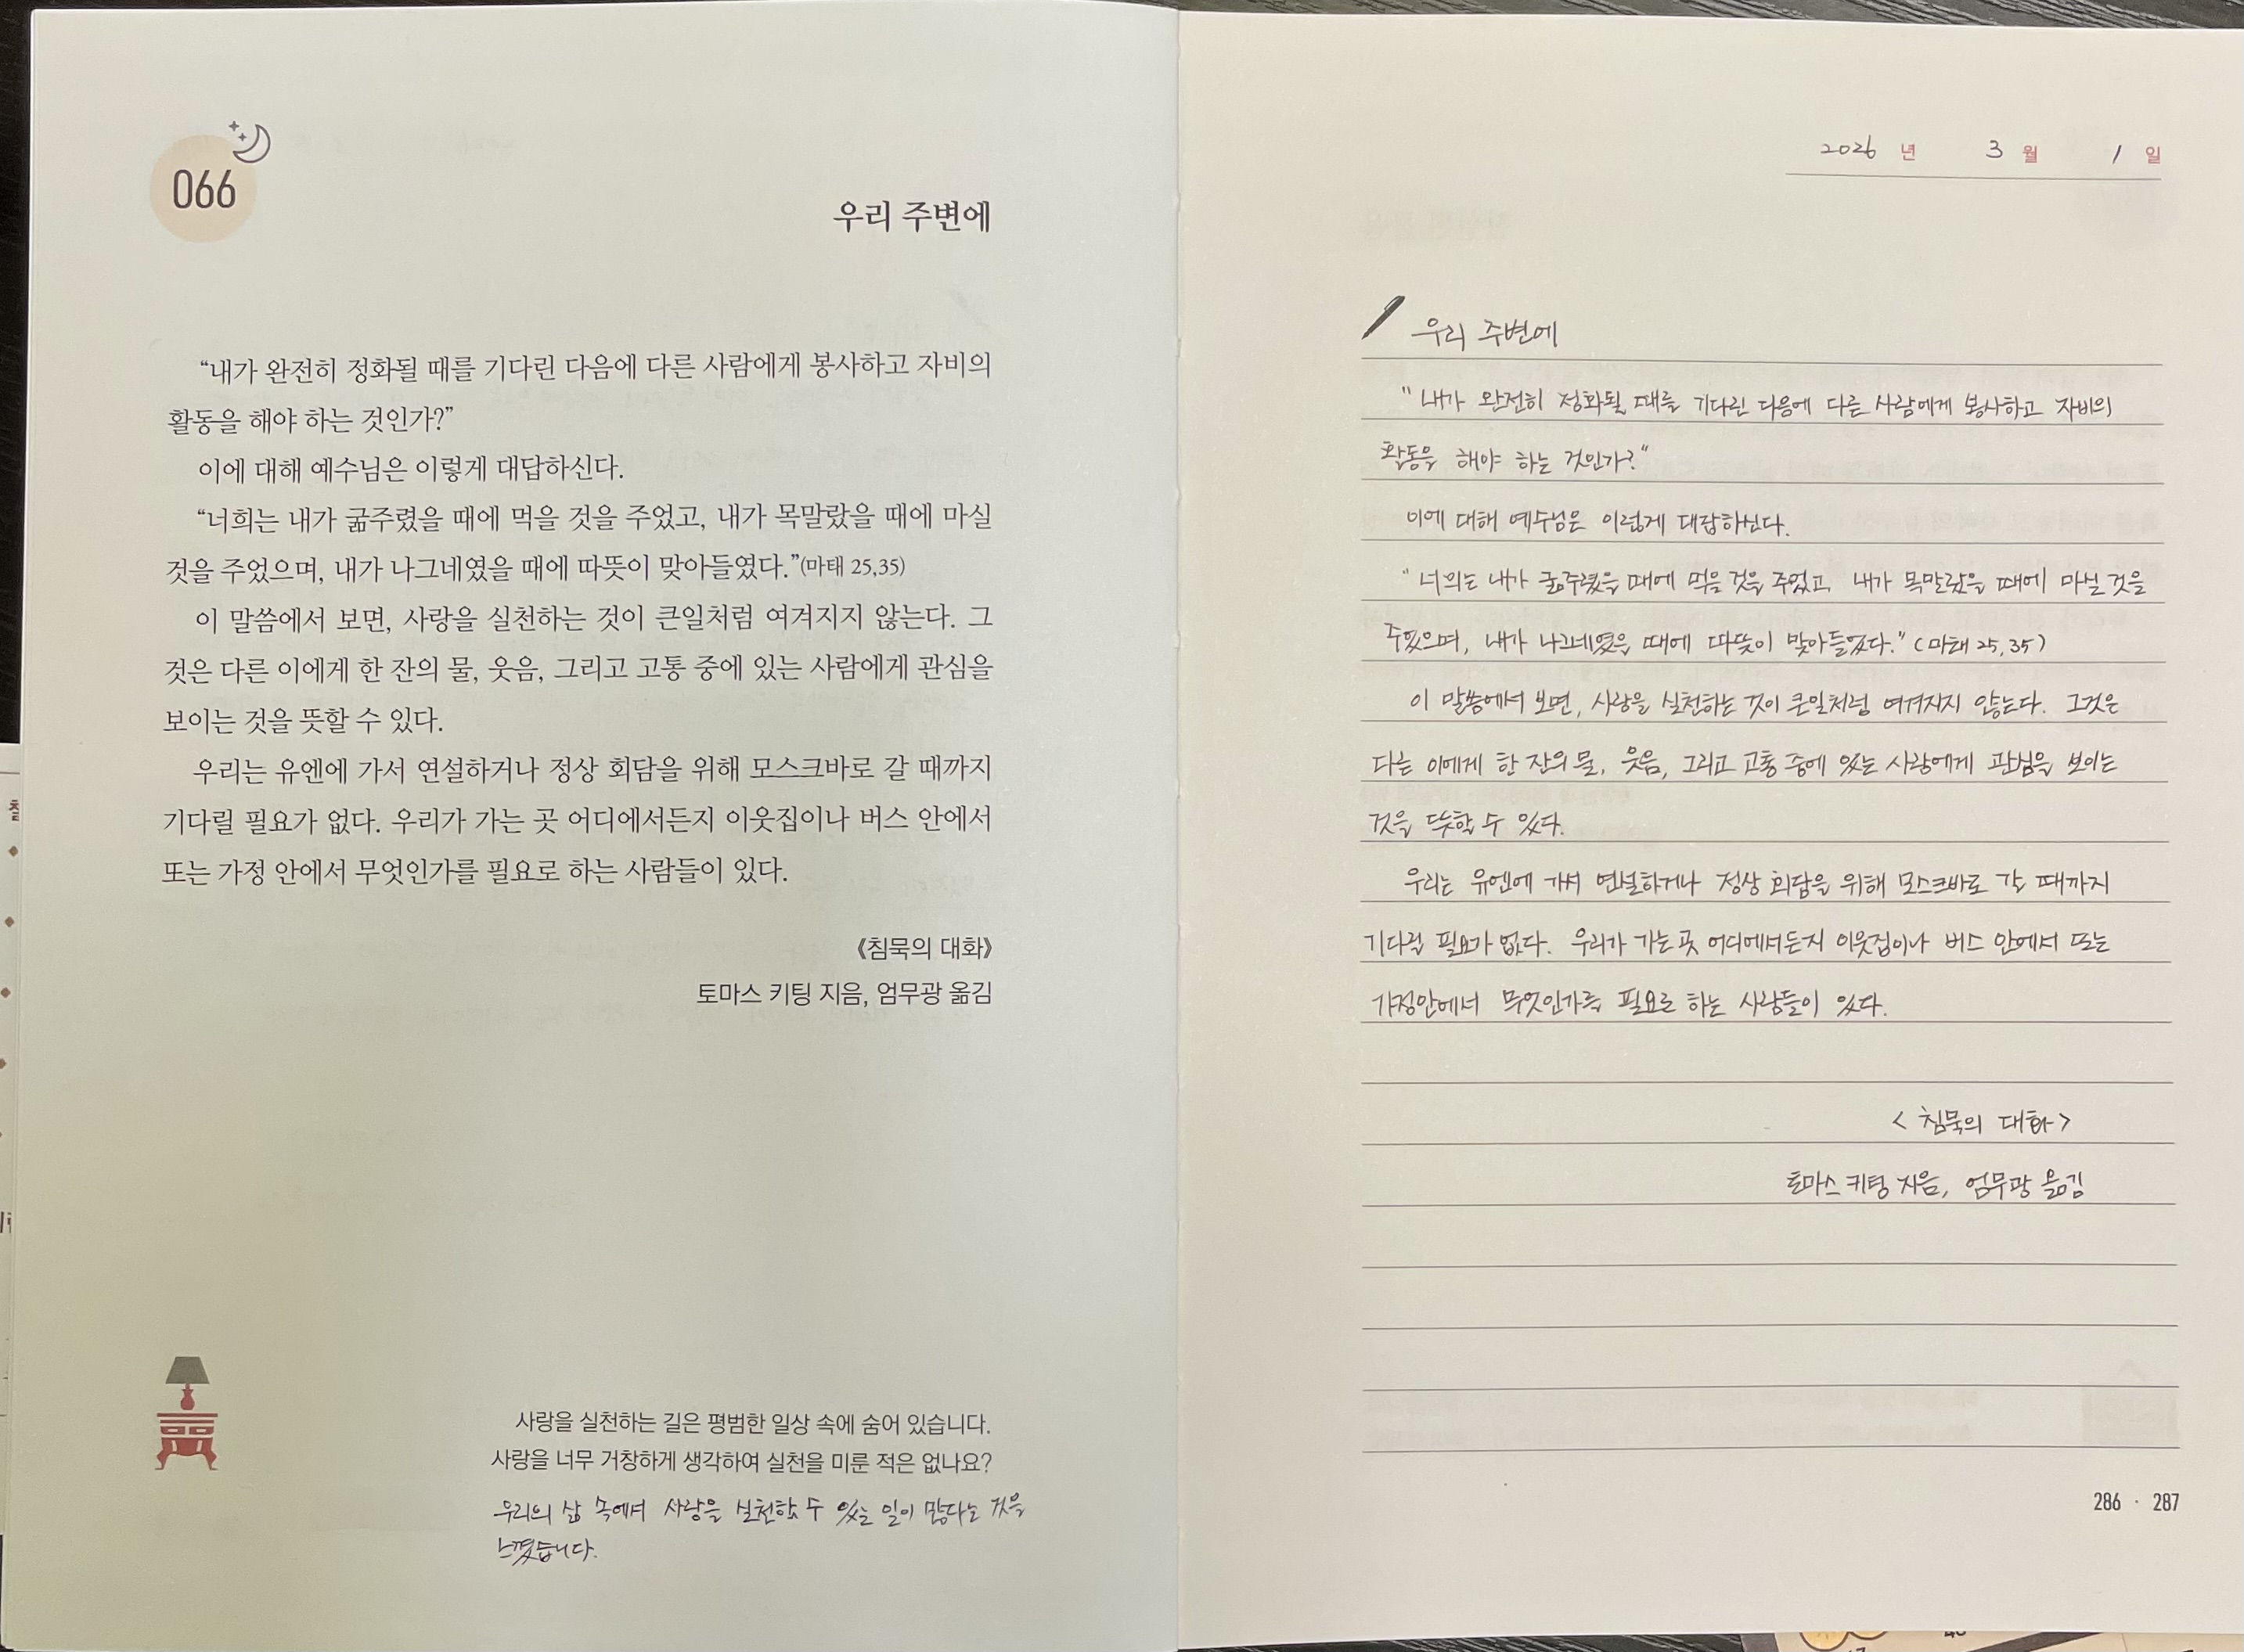 066
우리 주변에
“내가 완전히 정화될 때를 기다린 다음에 다른 사람에게 봉사하고 자비의
활동을 해야 하는 것인가?”
이에 대해 예수님은 이렇게 대답하신다.
“너희는 내가 굶주렸을 때에 먹을 것을 주었고, 내가 목말랐을 때에 마실
것을 주었으며, 내가 나그네였을 때에 따뜻이 맞아들였다.”(마태 25,35)
이 말씀에서 보면, 사랑을 실천하는 것이 큰일처럼 여겨지지 않는다. 그
것은 다른 이에게 한 잔의 물, 웃음, 그리고 고통 중에 있는 사람에게 관심을
보이는 것을 뜻할 수 있다.
우리는 유엔에 가서 연설하거나 정상 회담을 위해 모스크바로 갈 때까지
기다릴 필요가 없다. 우리가 가는 곳 어디에서든지 이웃집이나 버스 안에서
또는 가정 안에서 무엇인가를 필요로 하는 사람들이 있다.
《침묵의 대화》
토마스 키팅 지음, 엄무광 옮김
사랑을 실천하는 길은 평범한 일상 속에 숨어 있습니다.
사랑을 너무 거창하게 생각하여 실천을 미룬 적은 없나요?
우리의 삶 속에서 사랑을 실천할 수 있는 일이 많다는 것을
느꼈습니다.
2026 년 3 월 1 일
우리 주변에
"내가 완전히 정화될 때를 기다린 다음에 다른 사람에게 봉사하고 자비의
활동을 해야 하는 것인가?"
이에 대해 예수님은 이렇게 대답하신다.
"너희는 내가 굶주렸을 때에 먹을 것을 주었고, 내가 목말랐을 때에 마실 것을
주었으며, 내가 나그네였을 때에 따뜻이 맞아들였다." (마태 25,35)
이 말씀에서 보면, 사랑을 실천하는 것이 큰일처럼 여겨지지 않는다. 그것은
다른 이에게 한 잔의 물, 웃음, 그리고 고통 중에 있는 사람에게 관심을 보이는
것을 뜻할 수 있다.
우리는 유엔에 가서 연설하거나 정상 회담을 위해 모스크바로 갈 때까지
기다릴 필요가 없다. 우리가 가는 곳 어디에서든지 이웃집이나 버스 안에서 또는
가정안에서 무엇인가를 필요로 하는 사람들이 있다.
<침묵의 대화>
토마스 키팅 지음, 엄무광 옮김
286 · 287